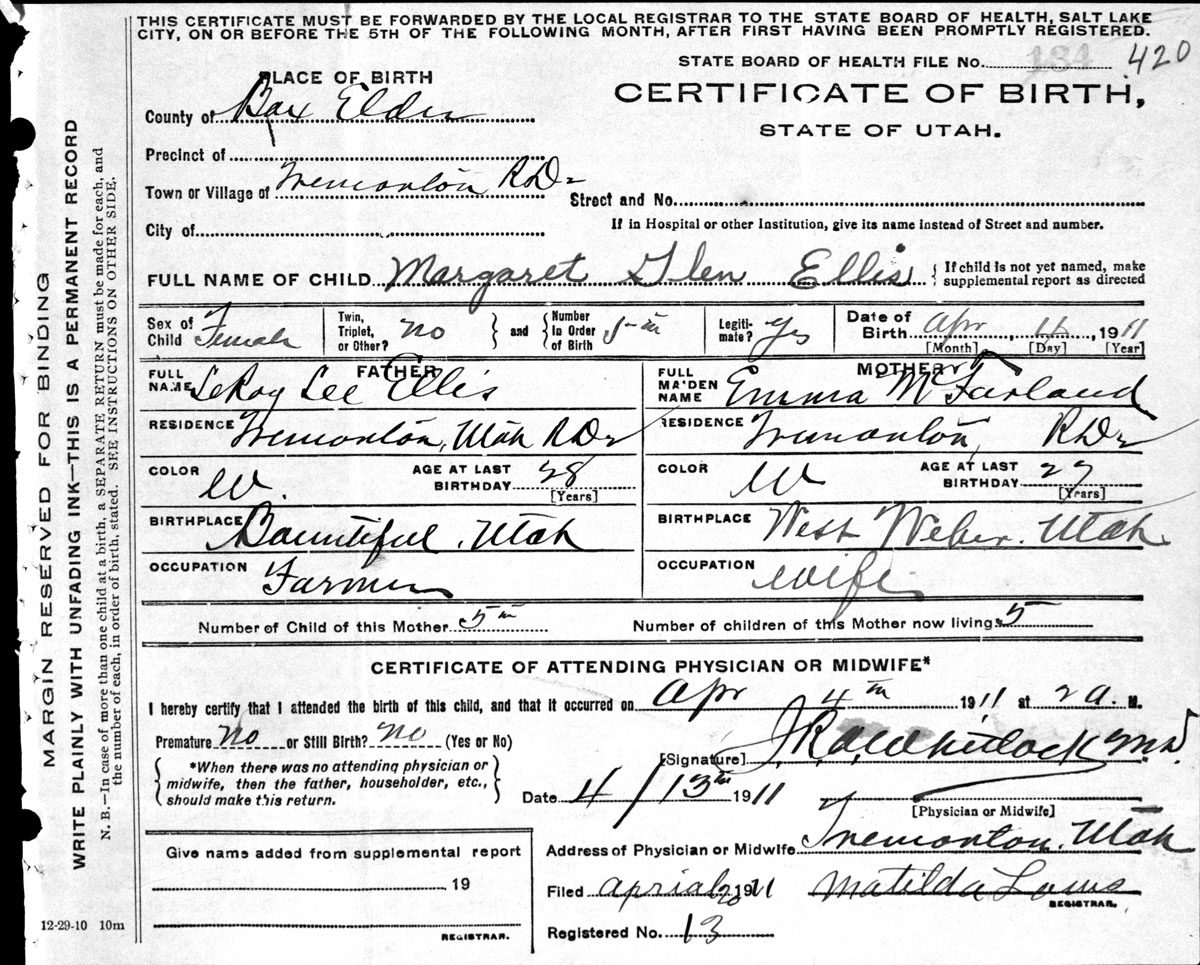 THIS CERTIFICATE MUST BE FORWARDED BY THE LOCAL REGISTRAR TO THE STATE BOARD OF HEALTH, SALT LAKE
CITY, ON OR BEFORE THE 5TH OF THE FOLLOWING MONTH, AFTER FIRST HAVING BEEN PROMPTLY REGISTERED.
STATE BOARD OF HEALTH FILE No. 184 420
PLACE OF BIRTH
CERTIFICATE OF BIRTH,
County of Box Elder
STATE OF UTAH.
Precinct of
Town or Village of Tremonton R.D.
Street and No.
City of
If in Hospital or other Institution, give its name instead of Street and number.
FULL NAME OF CHILD Margaret Glen Ellis { If child is not yet named, make
supplemental report as directed
Sex of Child Female
Twin, Triplet, or Other? no } and { Number in Order of Birth 5th
Legitimate? Yes
Date of Birth Apr 4, 1911
[Month] [Day] [Year]
FATHER
FULL NAME LeRoy Lee Ellis
RESIDENCE Tremonton, Utah R.D.
COLOR W. AGE AT LAST BIRTHDAY 28
[Years]
BIRTHPLACE Bountiful, Utah
OCCUPATION Farmer
MOTHER
FULL MAIDEN NAME Emma McFarland
RESIDENCE Tremonton, R.D.
COLOR W AGE AT LAST BIRTHDAY 27
[Years]
BIRTHPLACE West Weber. Utah.
OCCUPATION wife
Number of Child of this Mother 5th
Number of children of this Mother now living 5
CERTIFICATE OF ATTENDING PHYSICIAN OR MIDWIFE*
I hereby certify that I attended the birth of this child, and that it occurred on Apr 4th 1911 at 2 a. M.
Premature no or Still Birth? no (Yes or No)
[Signature] M.D.
*When there was no attending physician or
midwife, then the father, householder, etc.,
should make this return.
Date 4/13th 1911
[Physician or Midwife]
Give name added from supplemental report
19
REGISTRAR.
Address of Physician or Midwife Tremonton, Utah
Filed 20 1911 Matilda
REGISTRAR.
Registered No. 13
12-29-10 10m
MARGIN RESERVED FOR BINDING
WRITE PLAINLY WITH UNFADING INK—THIS IS A PERMANENT RECORD
N. B.—In case of more than one child at a birth, a SEPARATE RETURN must be made for each, and
the number of each, in order of birth, stated. SEE INSTRUCTIONS ON OTHER SIDE.